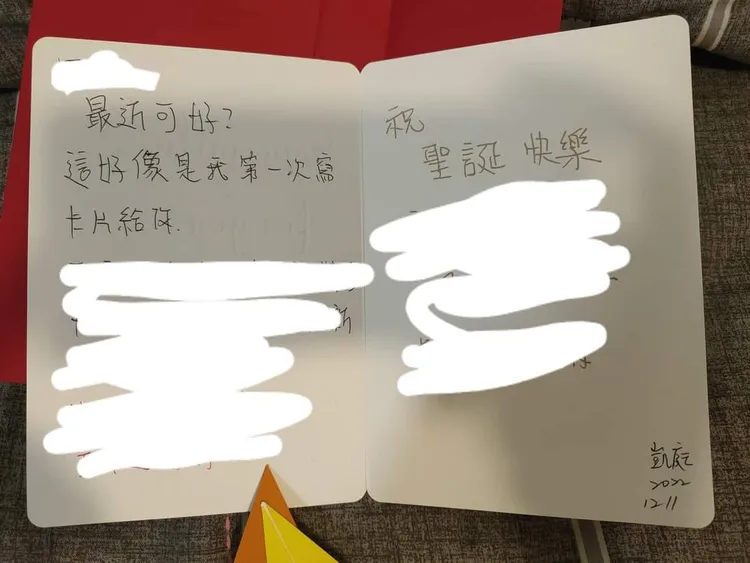 最近可好？
這好像是我第一次寫
卡片給你.
新
祝
聖誕 快樂
凱庭
2022
12 11